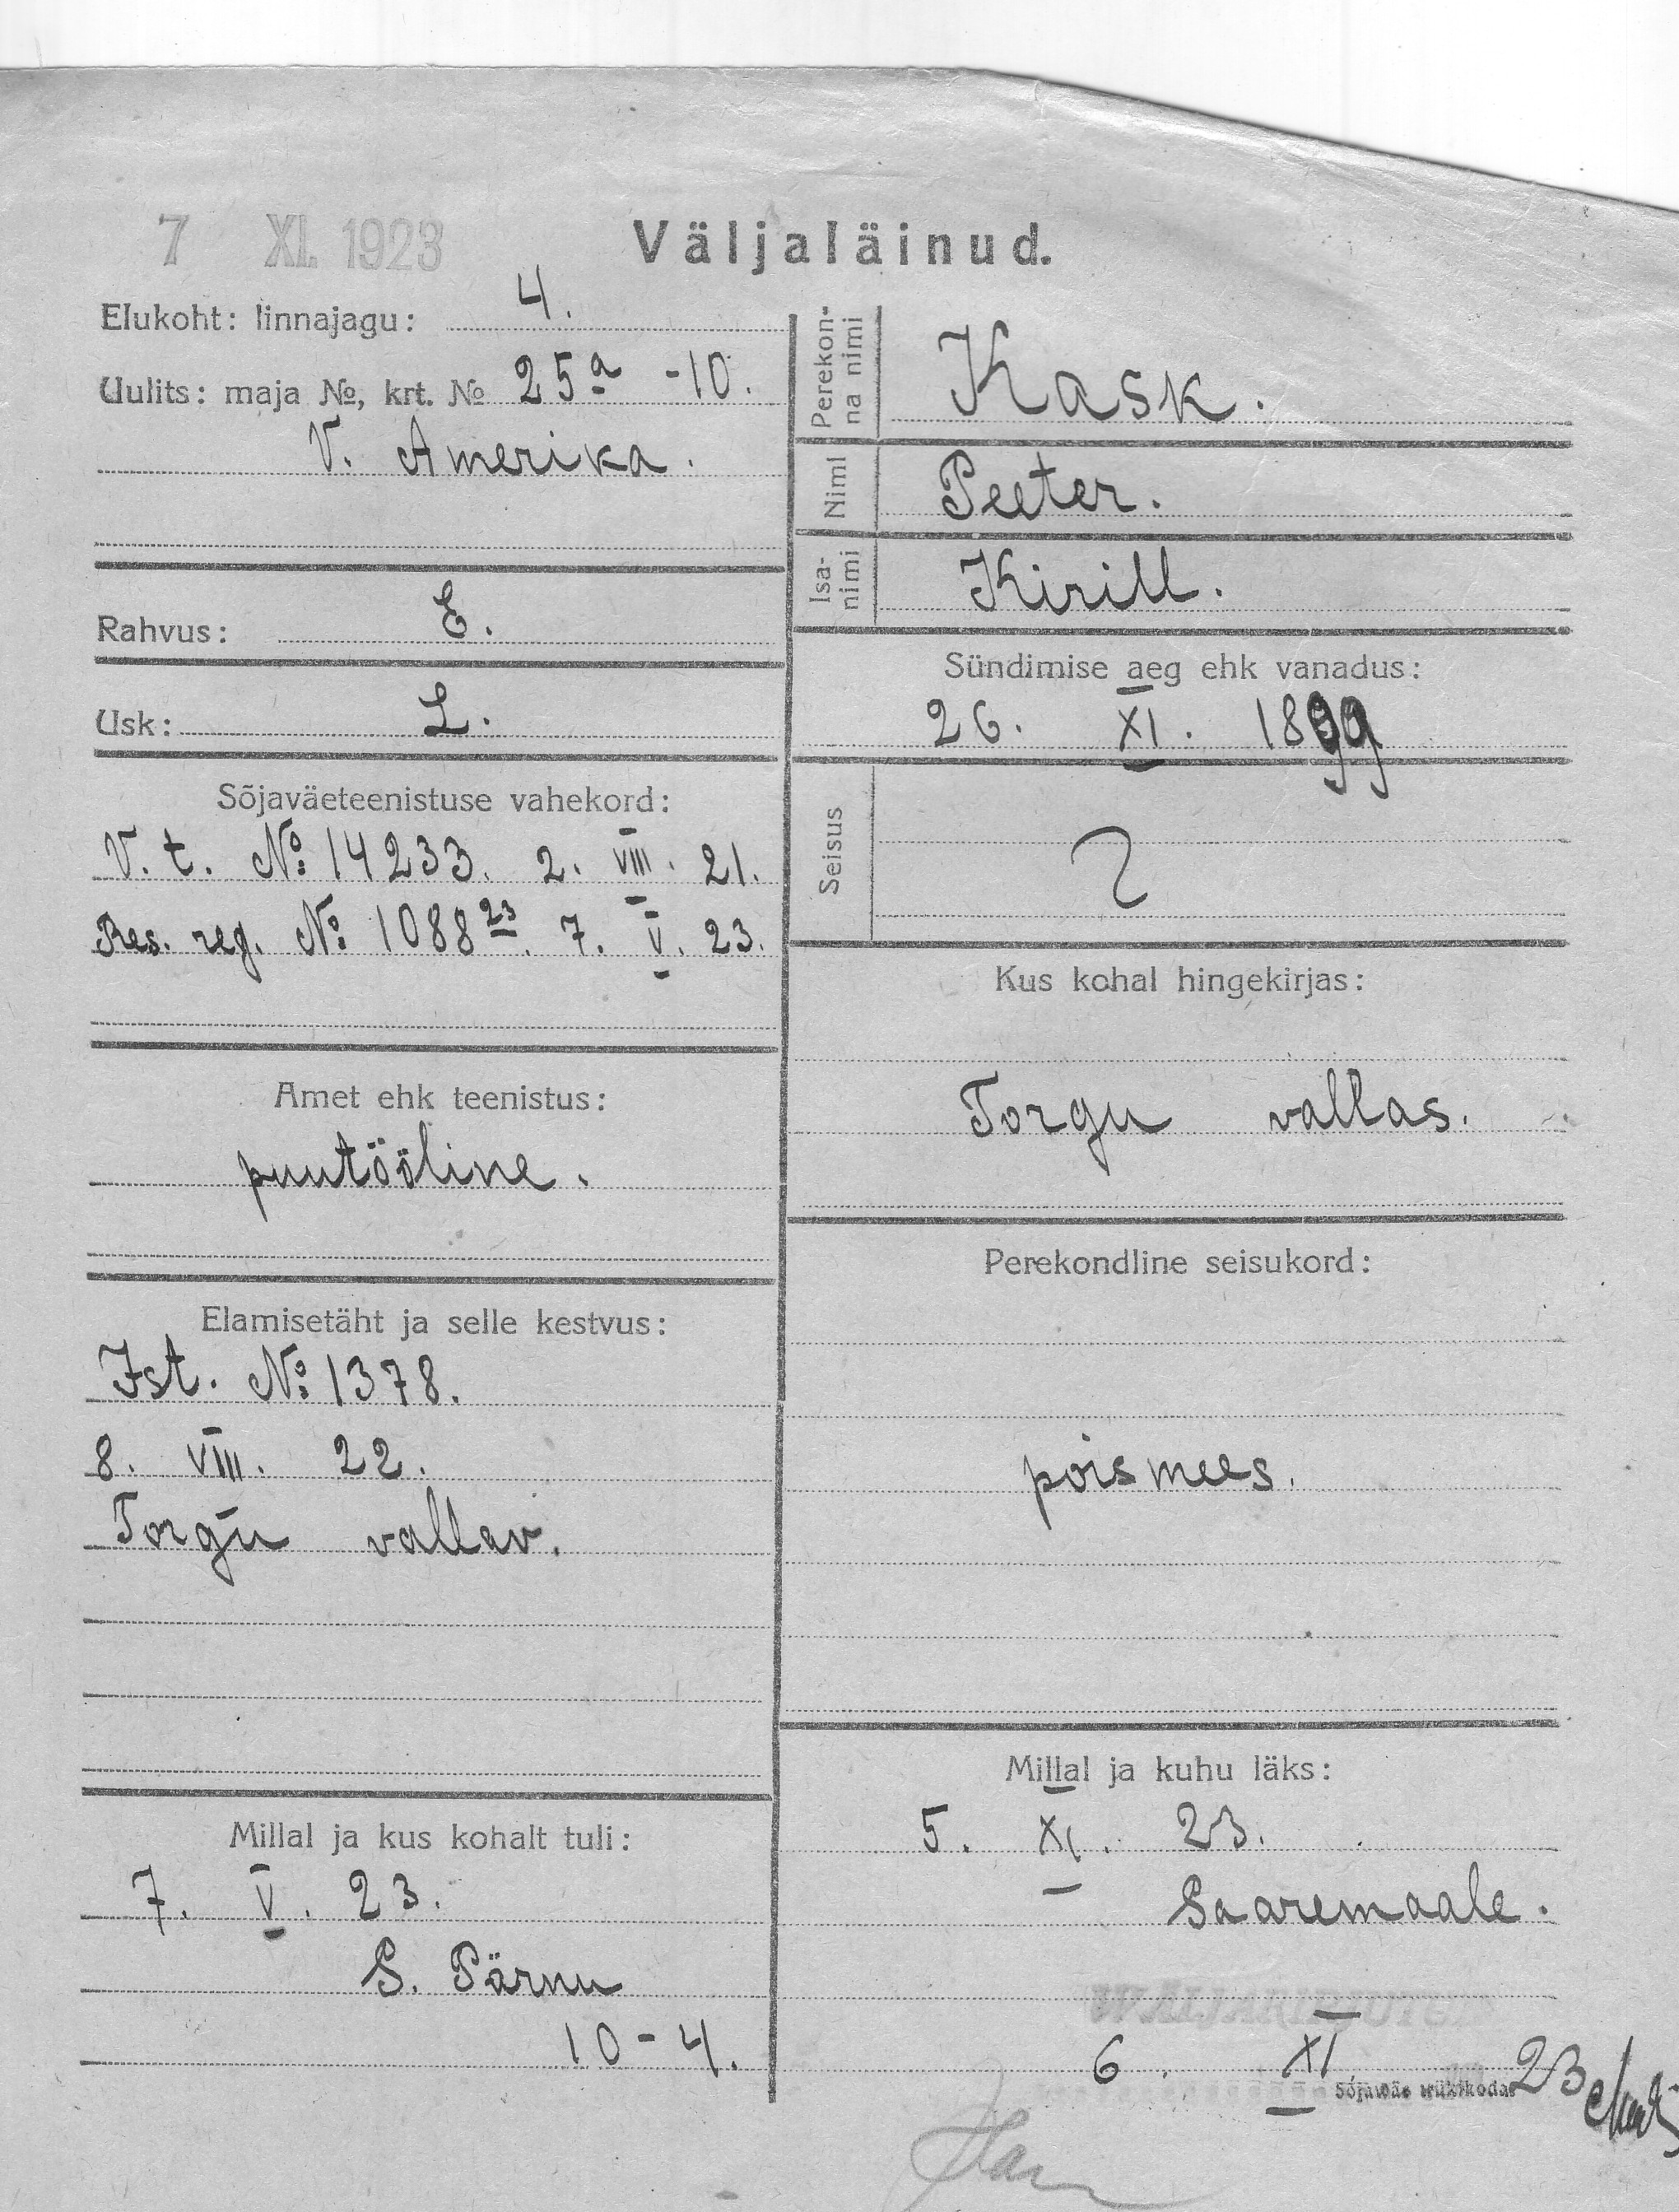 7 XI. 1923
Väljaläinud.
Elukoht: linnajagu: 4.
Uulits: maja №, krt. № 25a -10.
V. Amerika.
Rahvus: E.
Usk: L.
Sõjaväeteenistuse vahekord:
V. t. №: 14233. 2. VIII. 21.
Res. reg. №: 1088 23. 7. V. 23.
Amet ehk teenistus:
puutööline.
Elamisetäht ja selle kestvus:
Ist. №: 1378.
8. VIII. 22.
Torgu vallav.
Millal ja kus kohalt tuli:
7. V. 23.
S. Pärnu
10-4.
Perekon-
na nimi
Kask.
Nimi
Peeter.
Isa-
nimi
Kirill.
Sündimise aeg ehk vanadus:
26. XI. 1899
Seisus
Kus kohal hingekirjas:
Torgu vallas.
Perekondline seisukord:
poismees.
Millal ja kuhu läks:
5. XI. 23.
Saaremaale.
6. XI 23
Sõjawäe trükikoda